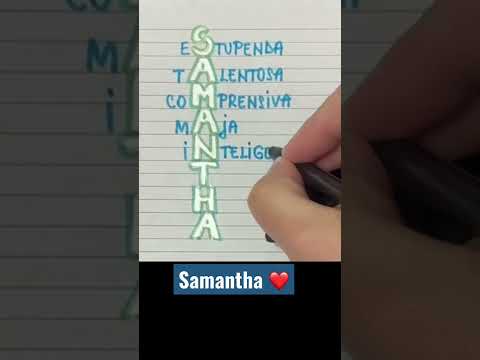 ESTUPENDA
TALENTOSA
COMPRENSIVA
MAjA
iNTELiGE
T
H
A
Samantha ❤️